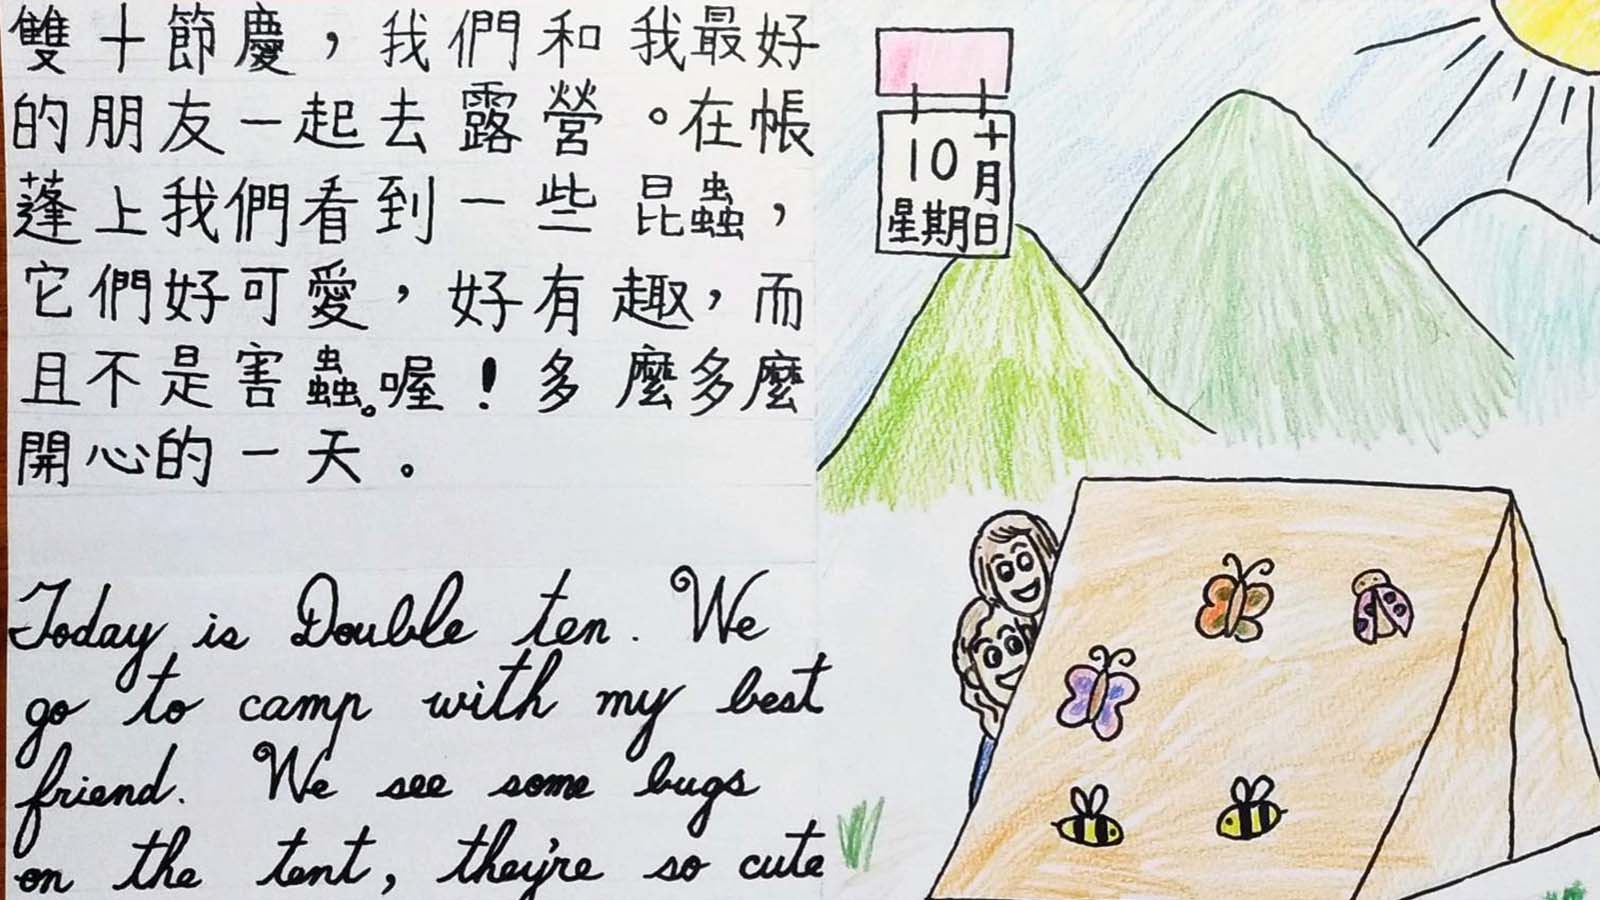 雙十節慶，我們和我最好
的朋友一起去露營。在帳
蓬上我們看到一些昆蟲，
它們好可愛，好有趣，而
且不是害蟲。喔！多麼多麼
開心的一天。
Today is Double ten. We
go to camp with my best
friend. We see some bugs
on the tent, they're so cute
10
十月
星期日